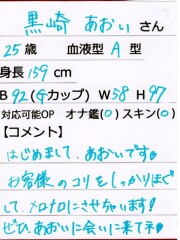 黒崎 あおい さん
25歳 血液型 A 型
身長 159 cm
B 92 (Gカップ) W 58 H 97
対応可能OP オナ鑑(○) スキン(○)
【コメント】
はじめまして、あおいです♡
お客様のコリをしっかりほぐ
して、メロメロにさせちゃいます!
ぜひ、あおいに会いに来てネ♡